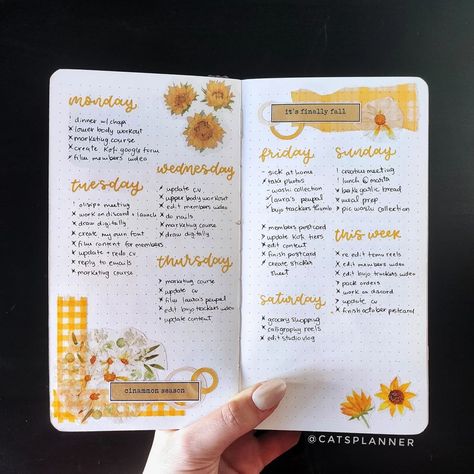 monday
! dinner w/ chapa
x lower body workout
x marketing course
x create kofi google form
x film members video
tuesday
• olsip + meeting
x work on discord + launch
x draw digitally
x create my own font
x film content for members
x update + redo cv
x reply to emails
x marketing course
wednesday
x update cv
x upper body workout
x edit members video
x do nails
x marketing course
x draw digitally
thursday
x marketing course
x update cv
x film laura's paypal
x edit bujo trackers video
• update content
cinammon season
it's finally fall
friday
- sick at home
x take photos
- washi collection
x laura's paypal
bujo trackers thumb
x members postcard
x update kofi tiers
x edit content
x finish postcard
x create sticker
sheet
saturday
x grocery shopping
x calligraphy reels
x edit studio vlog
sunday
! creators meeting
! lunch @
x bake garlic bread
x meal prep
x pic washi collection
this week
x re edit temu reels
x edit members video
x edit bujo trackers video
x pack orders
x work on discord
x update cv
x finish october postcard
@CATSPLANNER